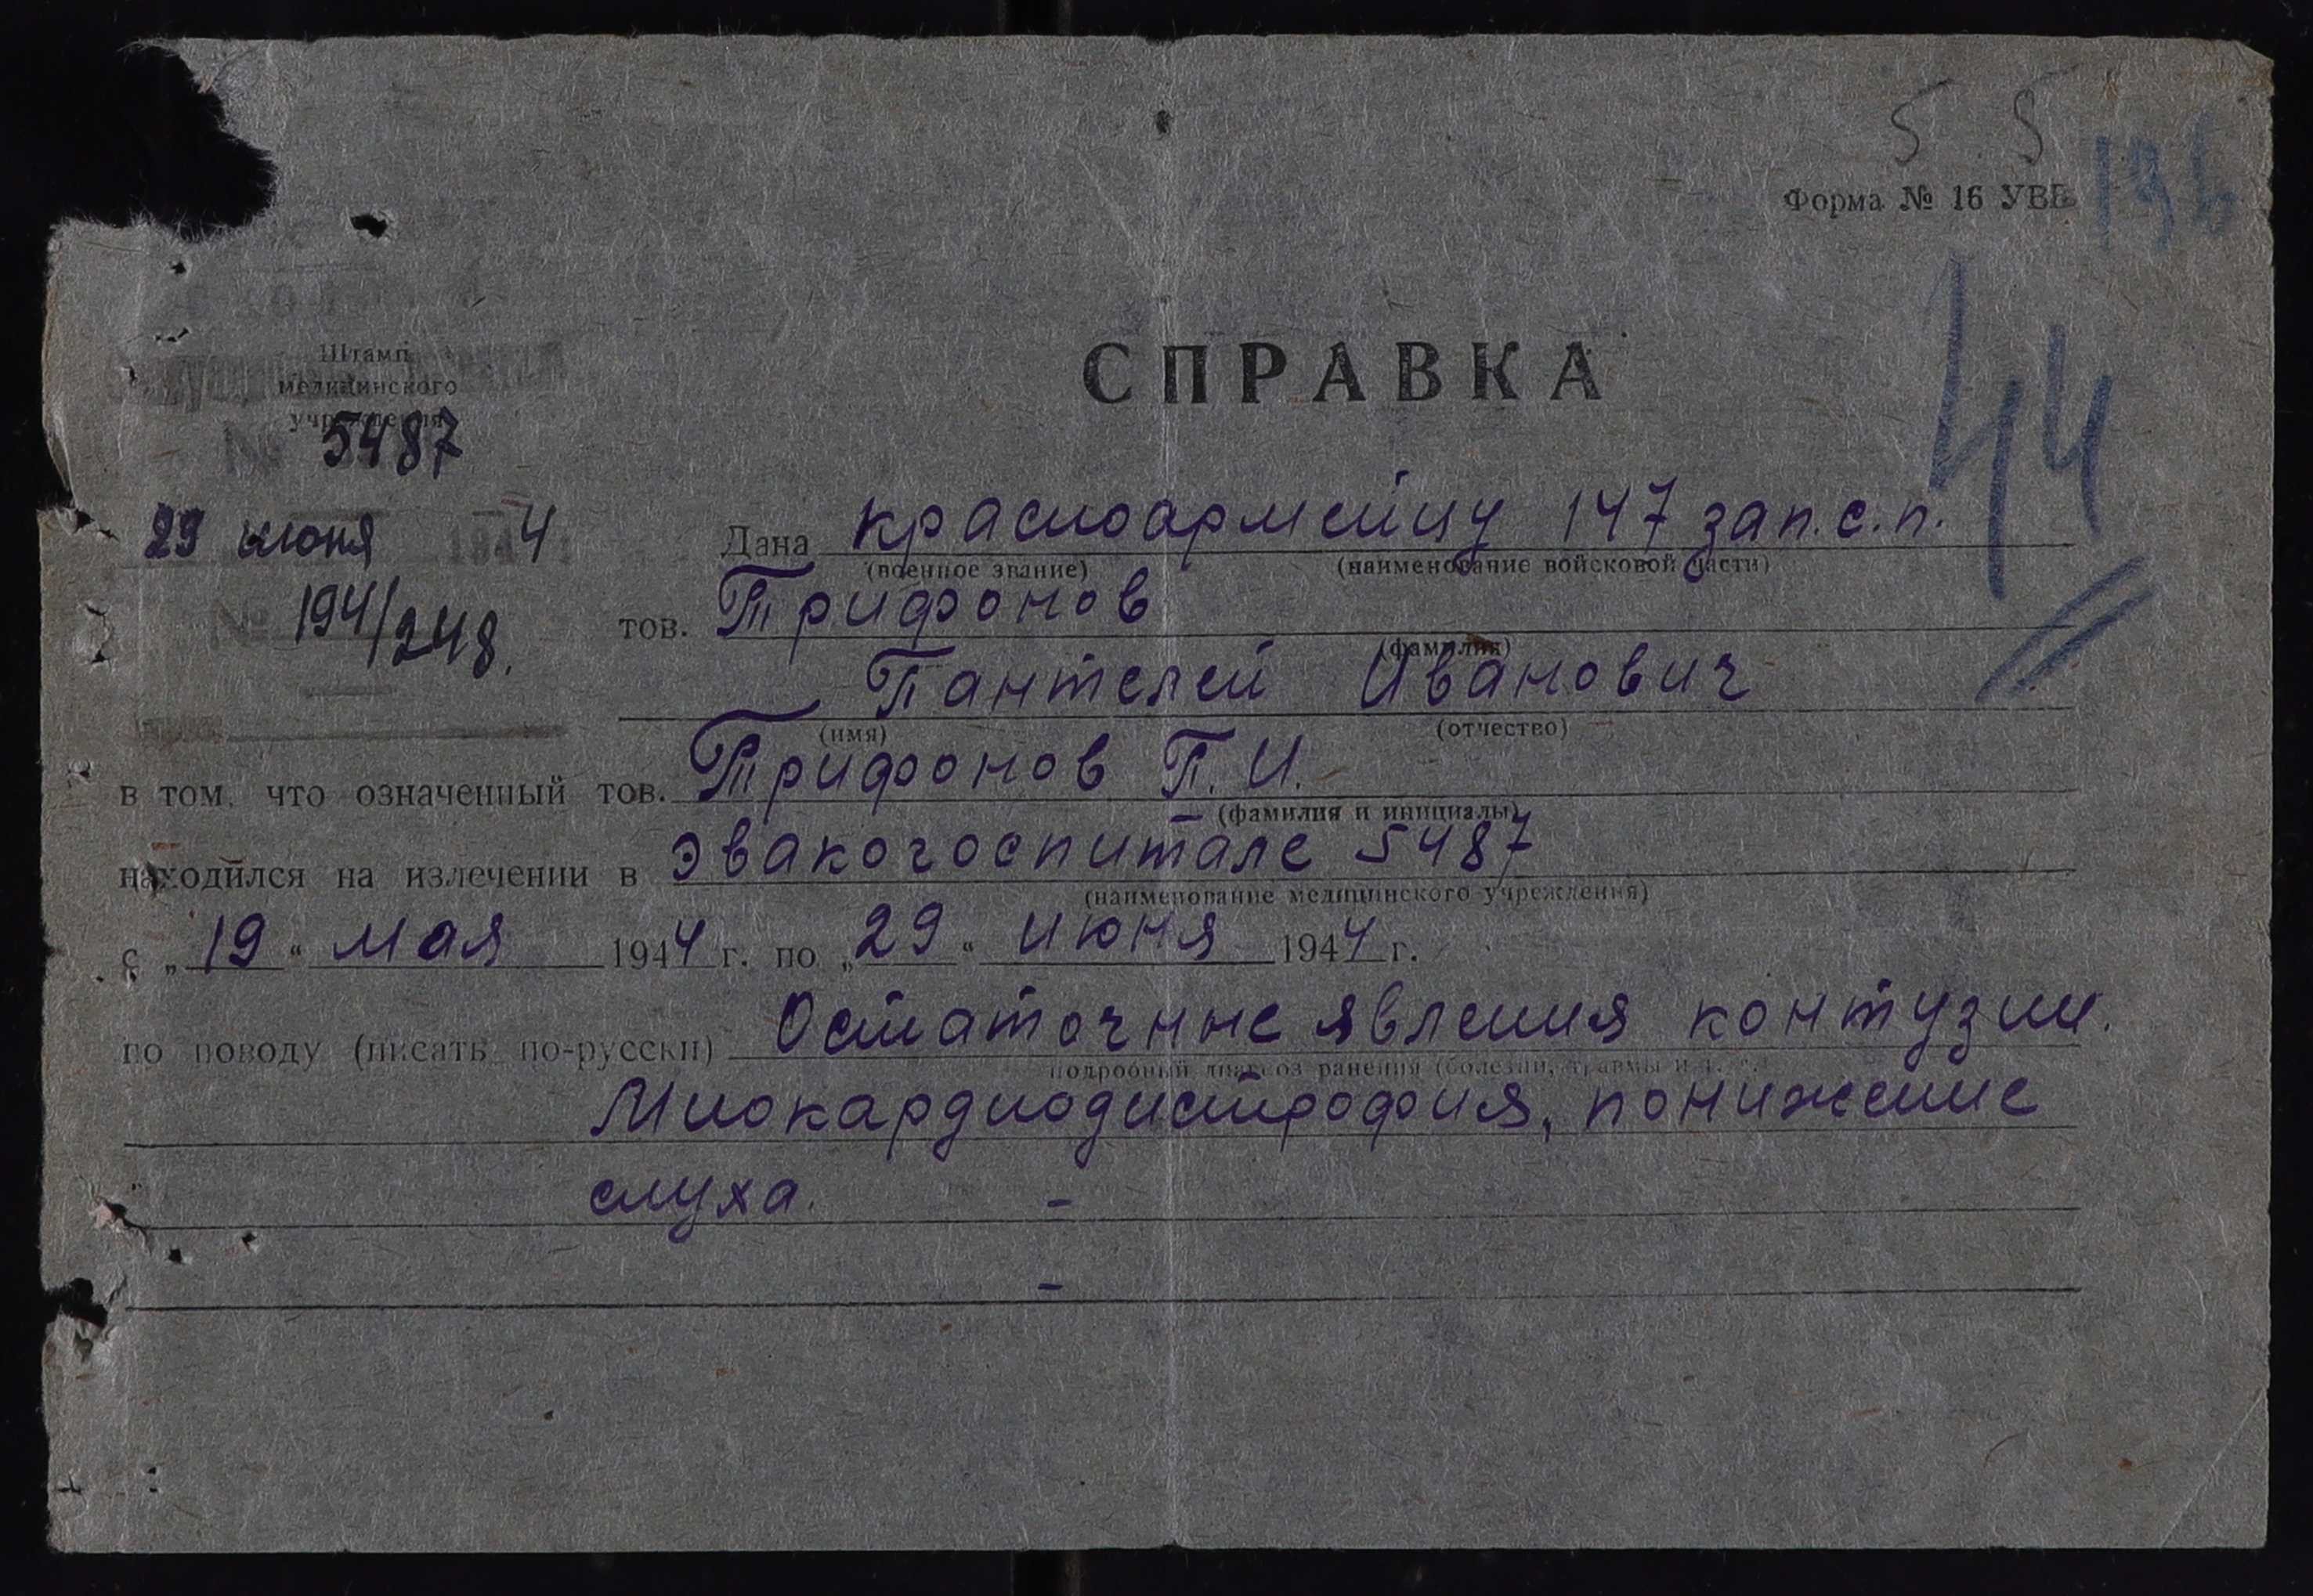 5 5
Форма № 16 УВВ 196
44
СПРАВКА
Штамп
медицинского
учреждения
№ 5487
29 июня 1944
№ 194/248.
Дана красноармейцу 147 зап.с.п.
(военное звание) (наименование войсковой части)
тов. Трифонов
(фамилия)
Пантелей Иванович
(имя) (отчество)
в том, что означенный тов. Трифонов П.И.
(фамилия и инициалы)
находился на излечении в эвакогоспитале 5487
(наименование медицинского учреждения)
с „19“ мая 1944 г. по „29“ июня 1944 г.
по поводу (писать по-русски) Остаточные явления контузии.
подробный диагноз ранения (болезни, травмы и т.
Миокардиодистрофия, понижение
слуха. -
-